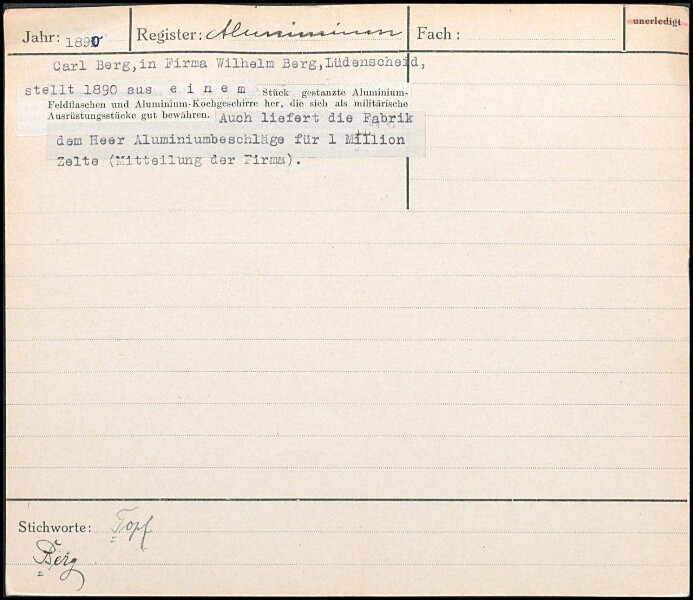 Jahr: 1890 Register: Aluminium Fach: unerledigt
Carl Berg, in Firma Wilhelm Berg, Lüdenscheid,
stellt 1890 aus e i n e m Stück gestanzte Aluminium-
Feldflaschen und Aluminium-Kochgeschirre her, die sich als militärische
Ausrüstungsstücke gut bewähren. Auch liefert die Fabrik
dem Heer Aluminiumbeschläge für 1 Million
Zelte (Mitteilung der Firma).
Stichworte: Topf
Berg